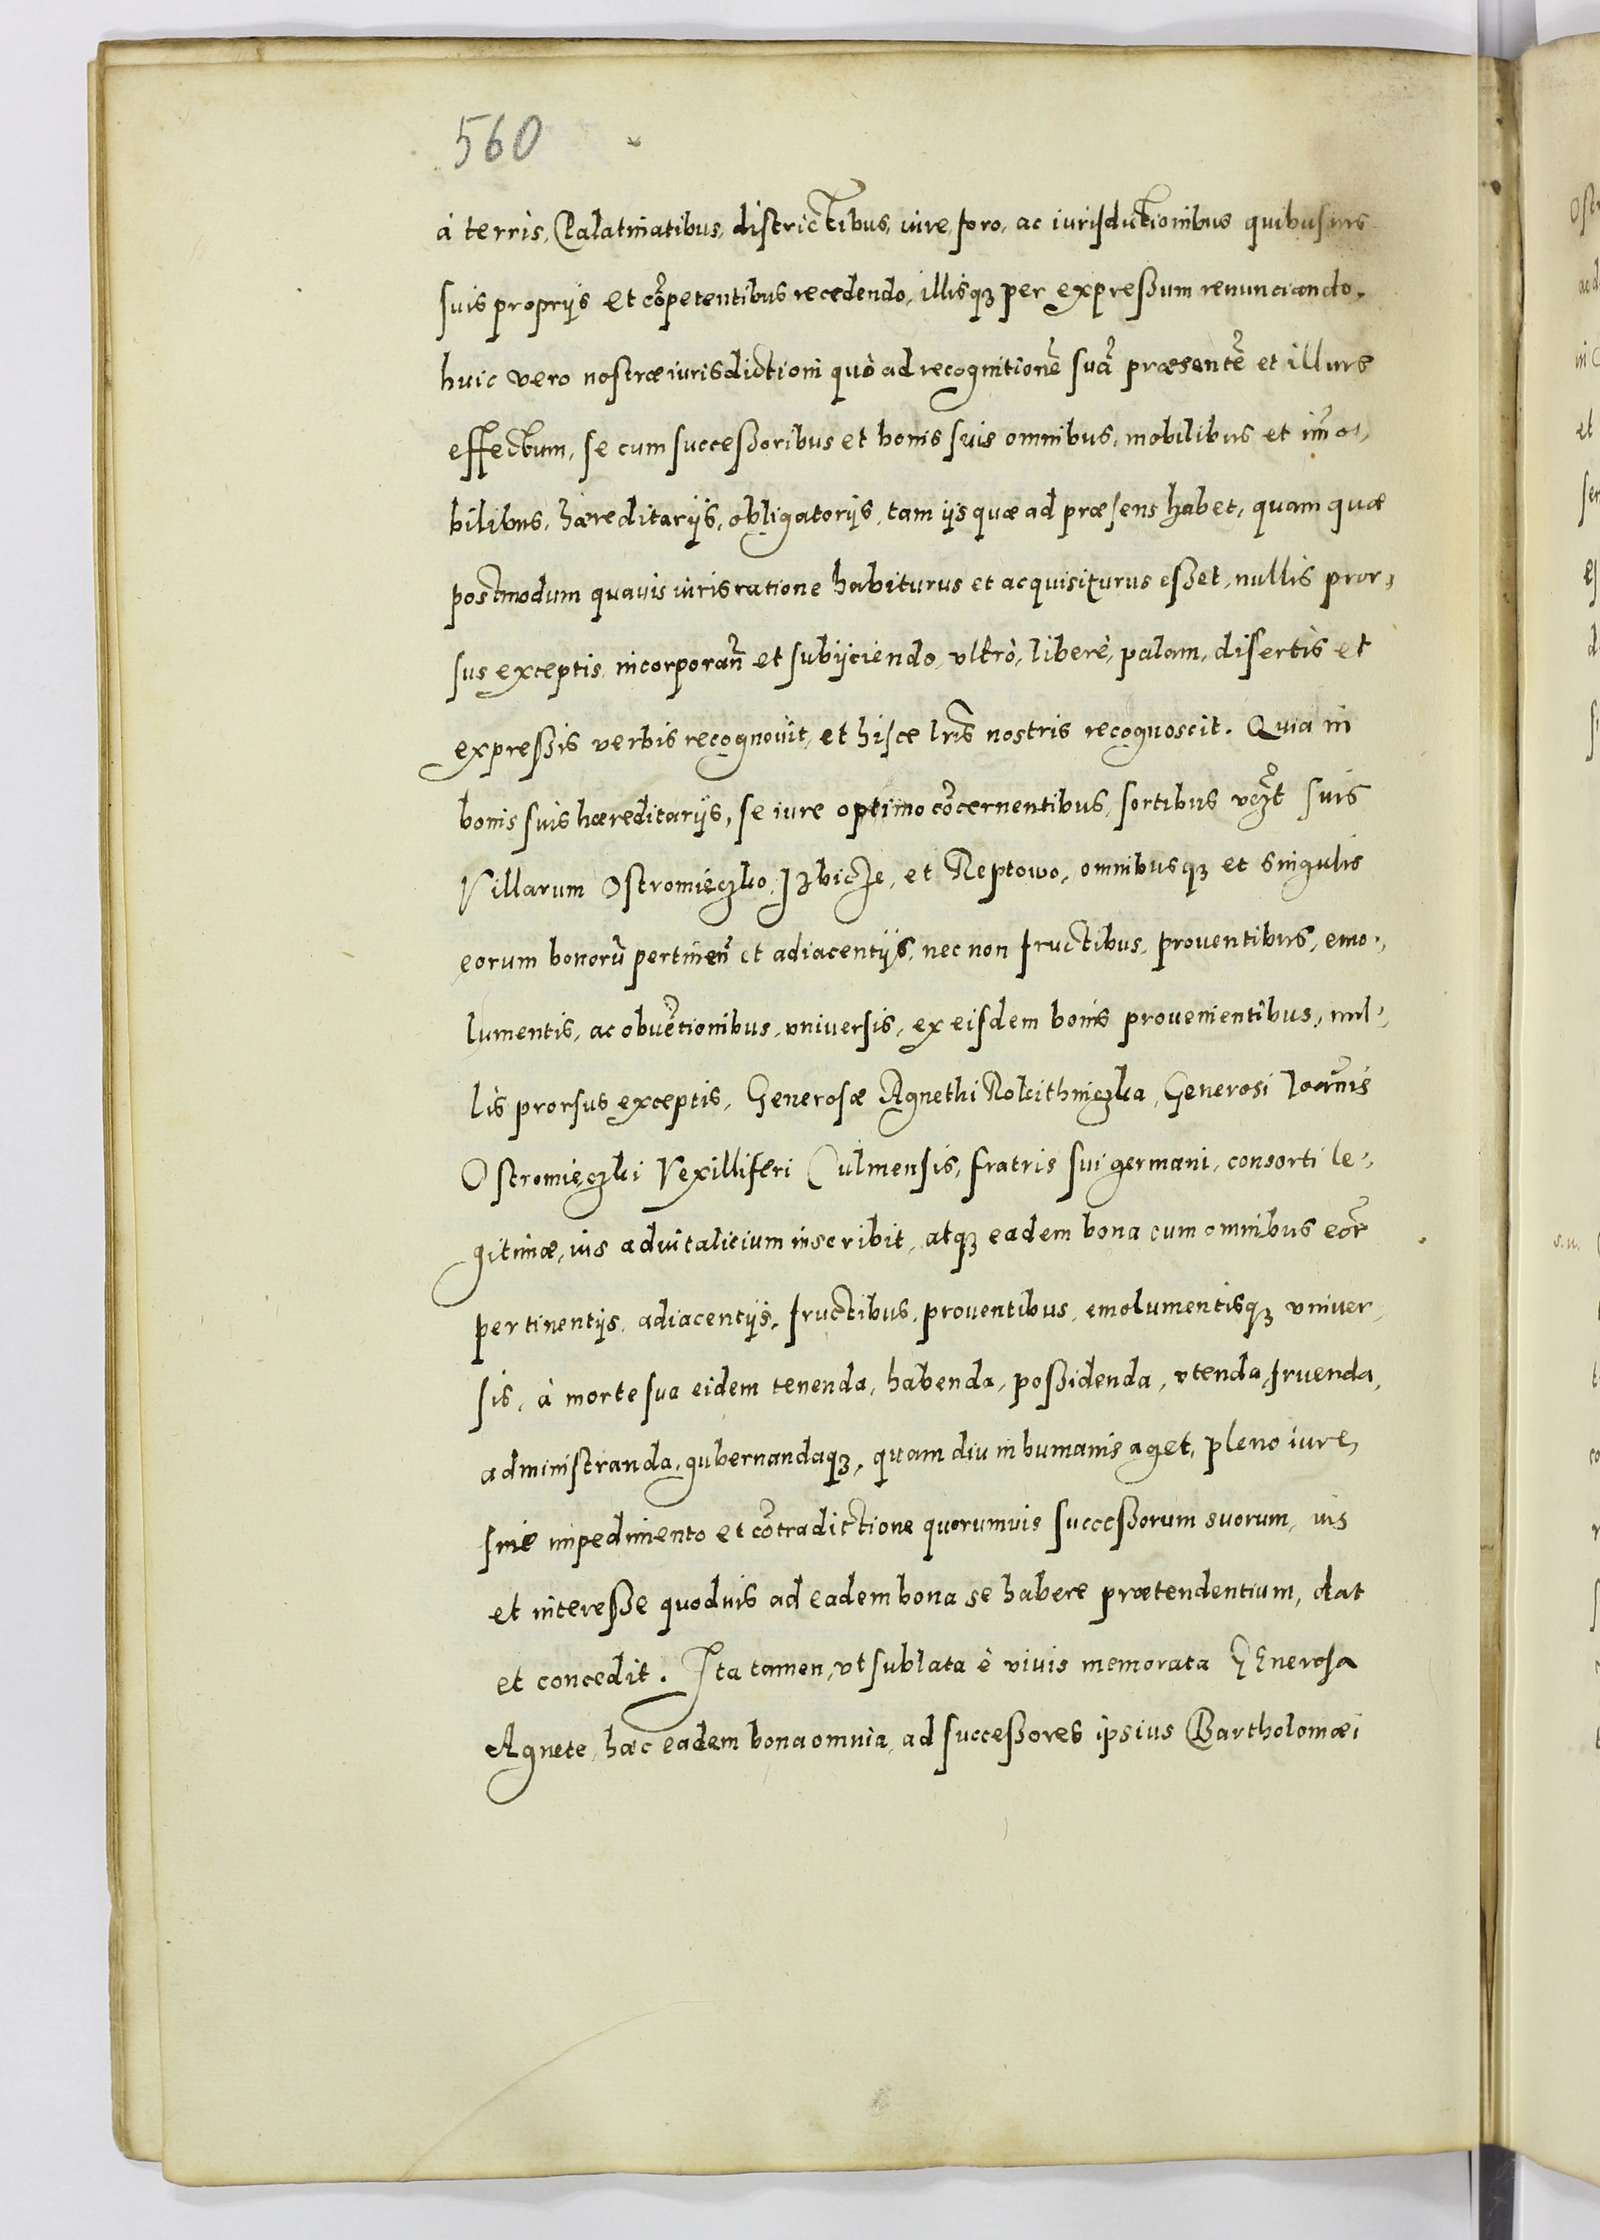 560
à terris, Palatinatibus, districtibus, iure, foro, ac iurisdictionibus quibusuis
suis proprijs et cõpetentibus recedendo, illisqꝫ per expreßum renunciando,
huic vero nostræ iurisdictioni quò ad recognitionẽ suã præsentẽ et illius
effectum, se cum succeßoribus et bonis suis omnibus, mobilibus et im̃o⸗
bilibus, hæreditarijs, obligatorijs, tam ijs quæ ad præsens habet, quam quæ
postmodum quauis iuris ratione habiturus et acquisiturus eßet, nullis pror⸗
sus exceptis, incorporan̄ et subijciendo, vltrò, liberè, palam, disertis et
expreßis verbis recognouit, et hisce lr̃is nostris recognoscit. Quia in
bonis suis hæreditarijs, se iure optimo cõcernentibus, sortibus vꝫt suis
Villarum Ostromieczko, Izbicze, et Neptowo, omnibusqꝫ et singulis
eorum bonorũ pertinen̄ et adiacentijs, nec non fructibus, prouentibus, emo⸗
lumentis, ac obuẽtionibus, vniuersis, ex eisdem bonis prouenientibus, nul⸗
lis prorsus exceptis, Generosæ Agnethi Rokithniczka, Generosi Ioãnis
Ostromięczki Vexilliferi Culmensis, fratris sui germani, consorti le⸗
gitimæ, ius aduitalicium inscribit, atqꝫ eadem bona cum omnibus eor̃
pertinentijs, adiacentijs, fructibus, prouentibus, emolumentisqꝫ vniuer⸗
sis, à morte sua eidem tenenda, habenda, poßidenda, vtenda, fruenda,
administranda, gubernandaqꝫ, quam diu in humanis aget, pleno iure,
sine impedimento et cõtradictione quorumuis succeßorum suorum, ius
et intereße quoduis ad eadem bona se habere prætendentium, dat
et concedit. Ita tamen, vt sublata è viuis memorata Generosa
Agnete, hæc eadem bona omnia, ad succeßores ipsius Bartholomæi